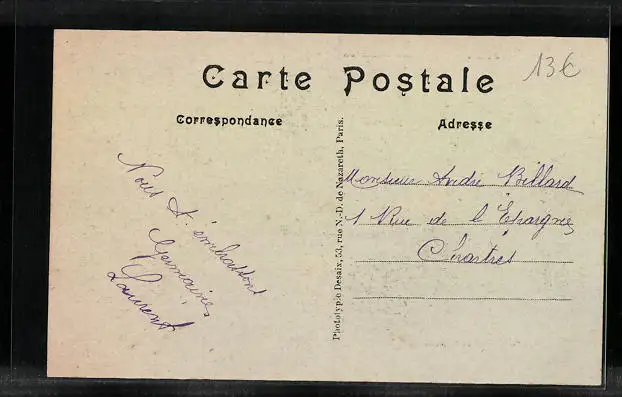 13€
Carte Postale
Correspondance
Adresse
Nous t'embrassons
Germaine
Laurent
Photolypie Desaix, 53, rue N.-D. de Nazareth, Paris.
Monsieur André Billard
1 Rue de l'Epargne
Chartres